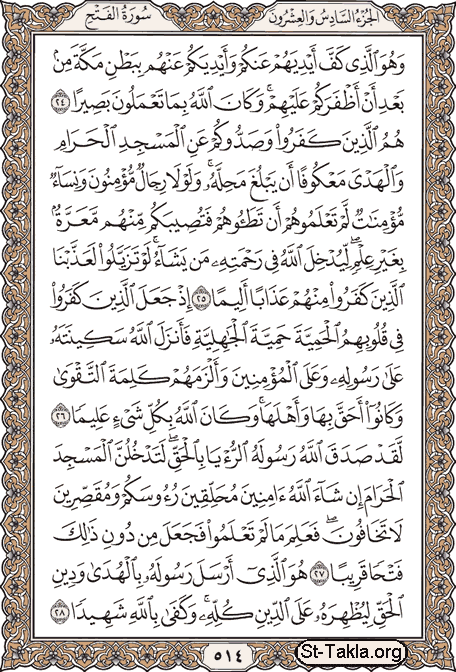 الجُزْءُ السَّادِسُ وَالعِشْرُونَ سُورَةُ الفَتْحِ
وَهُوَ ٱلَّذِى كَفَّ أَيْدِيَهُمْ عَنكُمْ وَأَيْدِيَكُمْ عَنْهُم بِبَطْنِ مَكَّةَ مِنۢ
بَعْدِ أَنْ أَظْفَرَكُمْ عَلَيْهِمْ ۚ وَكَانَ ٱللَّهُ بِمَا تَعْمَلُونَ بَصِيرًا ٢٤
هُمُ ٱلَّذِينَ كَفَرُوا۟ وَصَدُّوكُمْ عَنِ ٱلْمَسْجِدِ ٱلْحَرَامِ
وَٱلْهَدْىَ مَعْكُوفًا أَن يَبْلُغَ مَحِلَّهُۥ ۚ وَلَوْلَا رِجَالٌ مُّؤْمِنُونَ وَنِسَآءٌ
مُّؤْمِنَٰتٌ لَّمْ تَعْلَمُوهُمْ أَن تَطَـُٔوهُمْ فَتُصِيبَكُم مِّنْهُم مَّعَرَّةٌۢ
بِغَيْرِ عِلْمٍ ۖ لِّيُدْخِلَ ٱللَّهُ فِى رَحْمَتِهِۦ مَن يَشَآءُ ۚ لَوْ تَزَيَّلُوا۟ لَعَذَّبْنَا
ٱلَّذِينَ كَفَرُوا۟ مِنْهُمْ عَذَابًا أَلِيمًا ٢٥ إِذْ جَعَلَ ٱلَّذِينَ كَفَرُوا۟
فِى قُلُوبِهِمُ ٱلْحَمِيَّةَ حَمِيَّةَ ٱلْجَٰهِلِيَّةِ فَأَنزَلَ ٱللَّهُ سَكِينَتَهُۥ
عَلَىٰ رَسُولِهِۦ وَعَلَى ٱلْمُؤْمِنِينَ وَأَلْزَمَهُمْ كَلِمَةَ ٱلتَّقْوَىٰ
وَكَانُوٓا۟ أَحَقَّ بِهَا وَأَهْلَهَا ۚ وَكَانَ ٱللَّهُ بِكُلِّ شَىْءٍ عَلِيمًا ٢٦
لَّقَدْ صَدَقَ ٱللَّهُ رَسُولَهُ ٱلرُّءْيَا بِٱلْحَقِّ ۖ لَتَدْخُلُنَّ ٱلْمَسْجِدَ
ٱلْحَرَامَ إِن شَآءَ ٱللَّهُ ءَامِنِينَ مُحَلِّقِينَ رُءُوسَكُمْ وَمُقَصِّرِينَ
لَا تَخَافُونَ ۖ فَعَلِمَ مَا لَمْ تَعْلَمُوا۟ فَجَعَلَ مِن دُونِ ذَٰلِكَ
فَتْحًا قَرِيبًا ٢٧ هُوَ ٱلَّذِىٓ أَرْسَلَ رَسُولَهُۥ بِٱلْهُدَىٰ وَدِينِ
ٱلْحَقِّ لِيُظْهِرَهُۥ عَلَى ٱلدِّينِ كُلِّهِۦ ۚ وَكَفَىٰ بِٱللَّهِ شَهِيدًا ٢٨
٥١٤
St-Takla.org